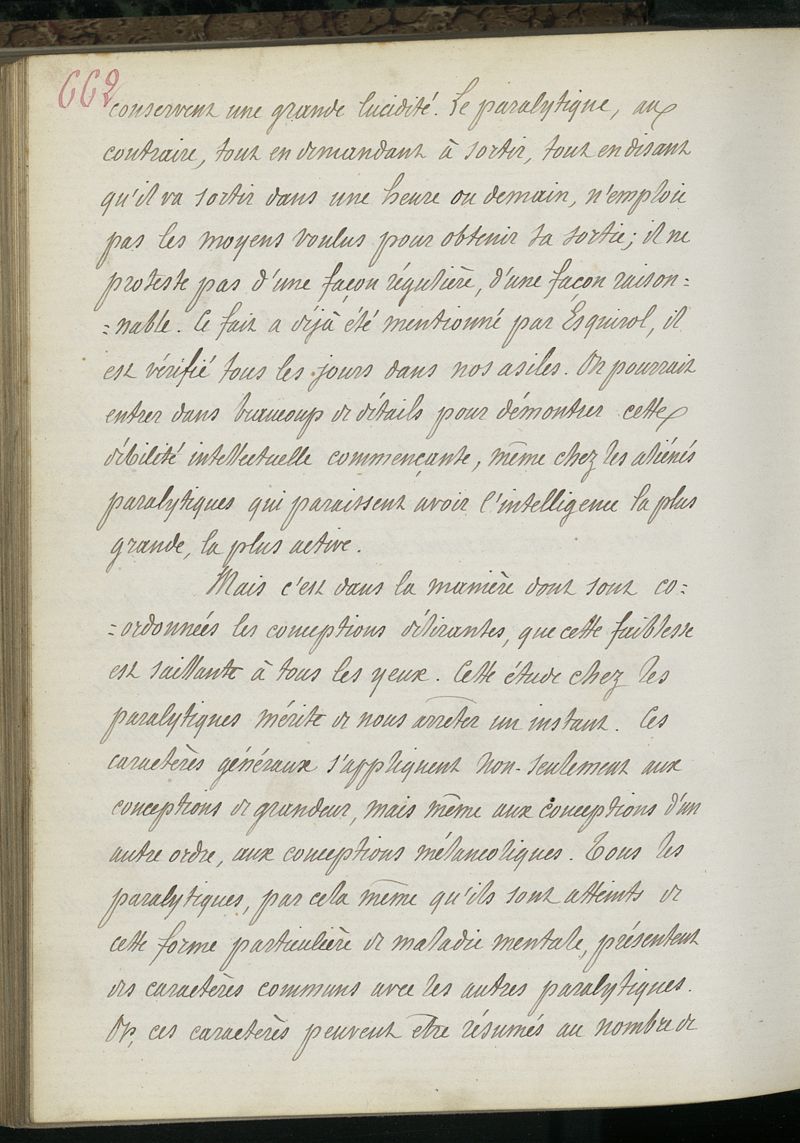 662
conservent une grande lucidité. Le paralytique, au
contraire, tout en demandant à sortir, tout en disant
qu'il va sortir dans une heure ou demain, n'emploie
pas les moyens voulus pour obtenir sa sortie; il ne
proteste pas d'une façon régulière, d'une façon raison=
=nable. Ce fait a déjà été mentionné par Esquirol, il
est vérifié tous les jours dans nos asiles. On pourrait
entrer dans beaucoup de détails pour démontrer cette
débilité intellectuelle commençante, même chez les aliénés
paralytiques qui paraissent avoir l'intelligence la plus
grande, la plus active.
Mais c'est dans la manière dont sont co=
=ordonnées les conceptions délirantes, que cette faiblesse
est saillante à tous les yeux. Cette étude chez les
paralytiques mérite de nous arrêter un instant. Ces
caractères généraux s'appliquent non-seulement aux
conceptions de grandeur, mais même aux conceptions d'un
autre ordre, aux conceptions mélancoliques. Tous les
paralytiques, par cela même qu'ils sont atteints de
cette forme particulière de maladie mentale, présentent
des caractères communs avec les autres paralytiques.
Or, ces caractères peuvent être résumés au nombre de